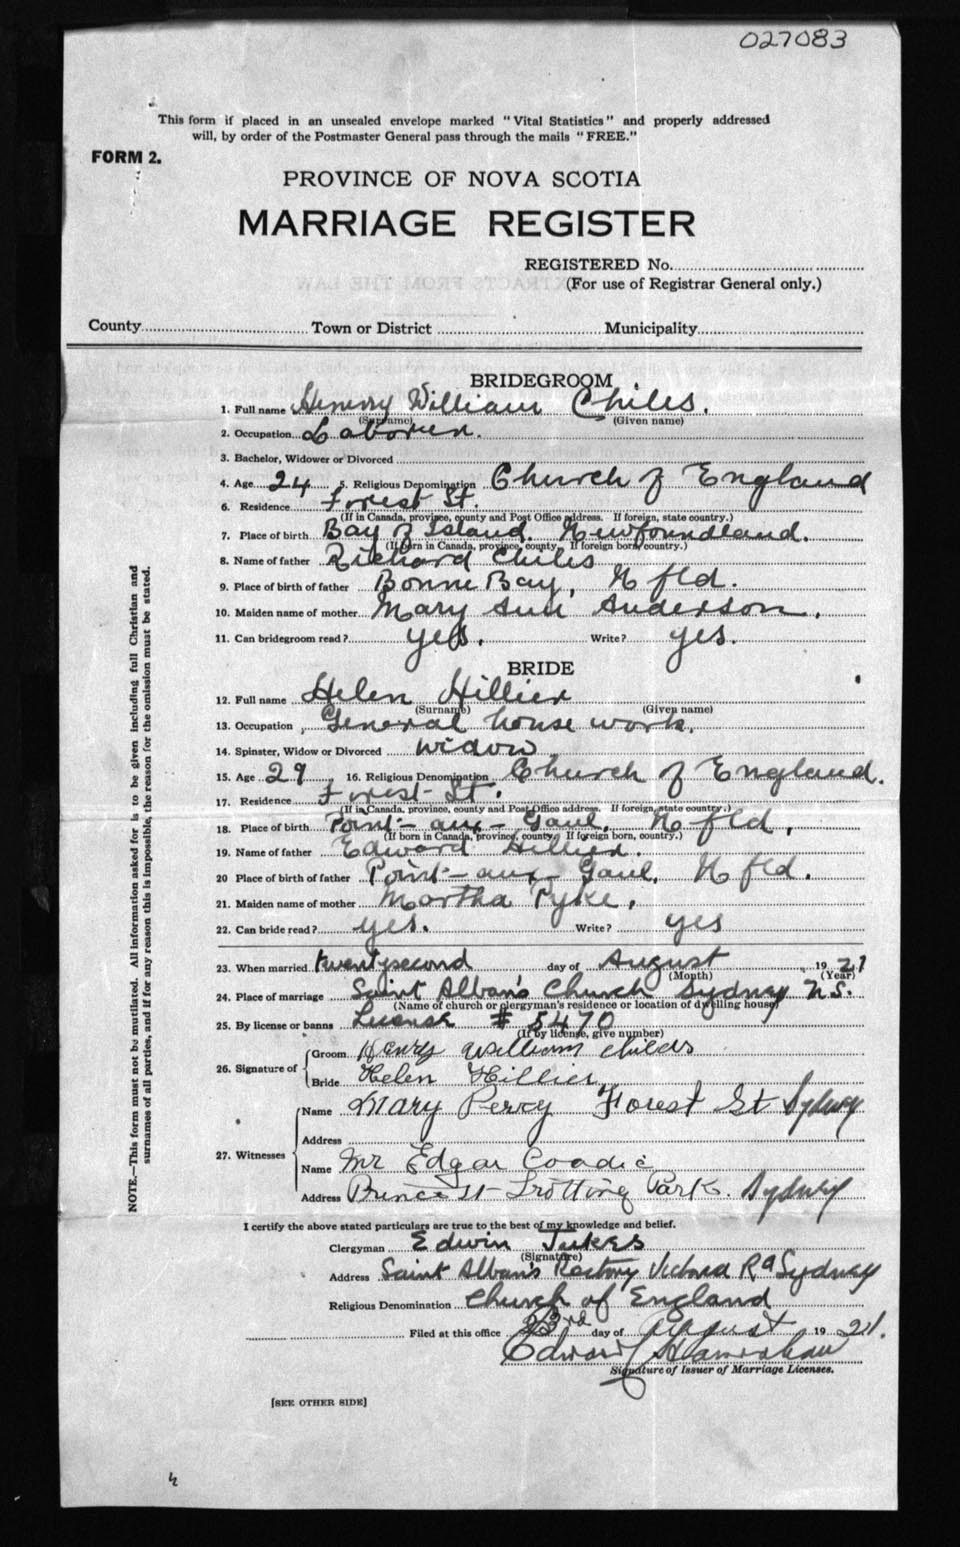 027083
This form if placed in an unsealed envelope marked "Vital Statistics" and properly addressed
will, by order of the Postmaster General pass through the mails "FREE."
FORM 2.
PROVINCE OF NOVA SCOTIA
MARRIAGE REGISTER
REGISTERED No.
(For use of Registrar General only.)
County Town or District Municipality
BRIDEGROOM
1. Full name Henry William Chiles.
(Surname) (Given name)
2. Occupation Laborer.
3. Bachelor, Widower or Divorced
4. Age 24 5. Religious Denomination Church of England
6. Residence Forest St.
(If in Canada, province, county and Post Office address. If foreign, state country.)
7. Place of birth Bay of Island. Newfoundland.
(If born in Canada, province, county. If foreign born, country.)
8. Name of father Richard Chiles
9. Place of birth of father Bonne Bay, Nfld.
10. Maiden name of mother Mary Ann Anderson.
11. Can bridegroom read? yes. Write? yes.
BRIDE
12. Full name Helen Hillier
(Surname) (Given name)
13. Occupation General house work.
14. Spinster, Widow or Divorced widow
15. Age 29 16. Religious Denomination Church of England.
17. Residence Forest St.
(If in Canada, province, county and Post Office address. If foreign, state country.)
18. Place of birth Point-aux-Gaul, Nfld.
(If born in Canada, province, county. If foreign born, country.)
19. Name of father Edward Hillier.
20 Place of birth of father Point-aux-Gaul, Nfld.
21. Maiden name of mother Martha Pyke.
22. Can bride read? yes. Write? yes
23. When married twentysecond day of August 1921
(Month) (Year)
24. Place of marriage Saint Alban's Church Sydney N.S.
(Name of church or clergyman's residence or location of dwelling house)
25. By license or banns License # 5470
(If by license, give number)
26. Signature of Groom Henry William Childs
Bride Helen Hillier
27. Witnesses Name Mary Percy Forest St Sydney
Address
Name Mr Edgar Coadic
Address Prince St Trotting Park. Sydney
I certify the above stated particulars are true to the best of my knowledge and belief.
Clergyman Edwin Jukes
(Signature)
Address Saint Alban's Rectory Victoria Rd Sydney
Religious Denomination Church of England
Filed at this office 23rd day of August 1921.
Edward
Signature of Issuer of Marriage Licenses.
[SEE OTHER SIDE]
NOTE.—This form must not be mutilated. All information asked for is to be given including full Christian and
surnames of all parties, and if for any reason this is impossible, the reason for the omission must be stated.